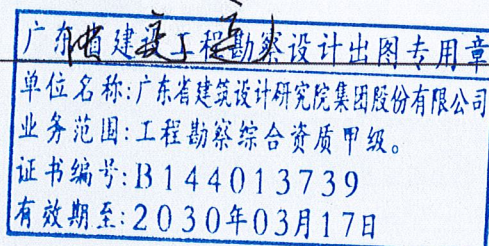 广东省建设工程勘察设计出图专用章
单位名称:广东省建筑设计研究院集团股份有限公司
业务范围:工程勘察综合资质甲级。
证书编号:B144013739
有效期至:2030年03月17日